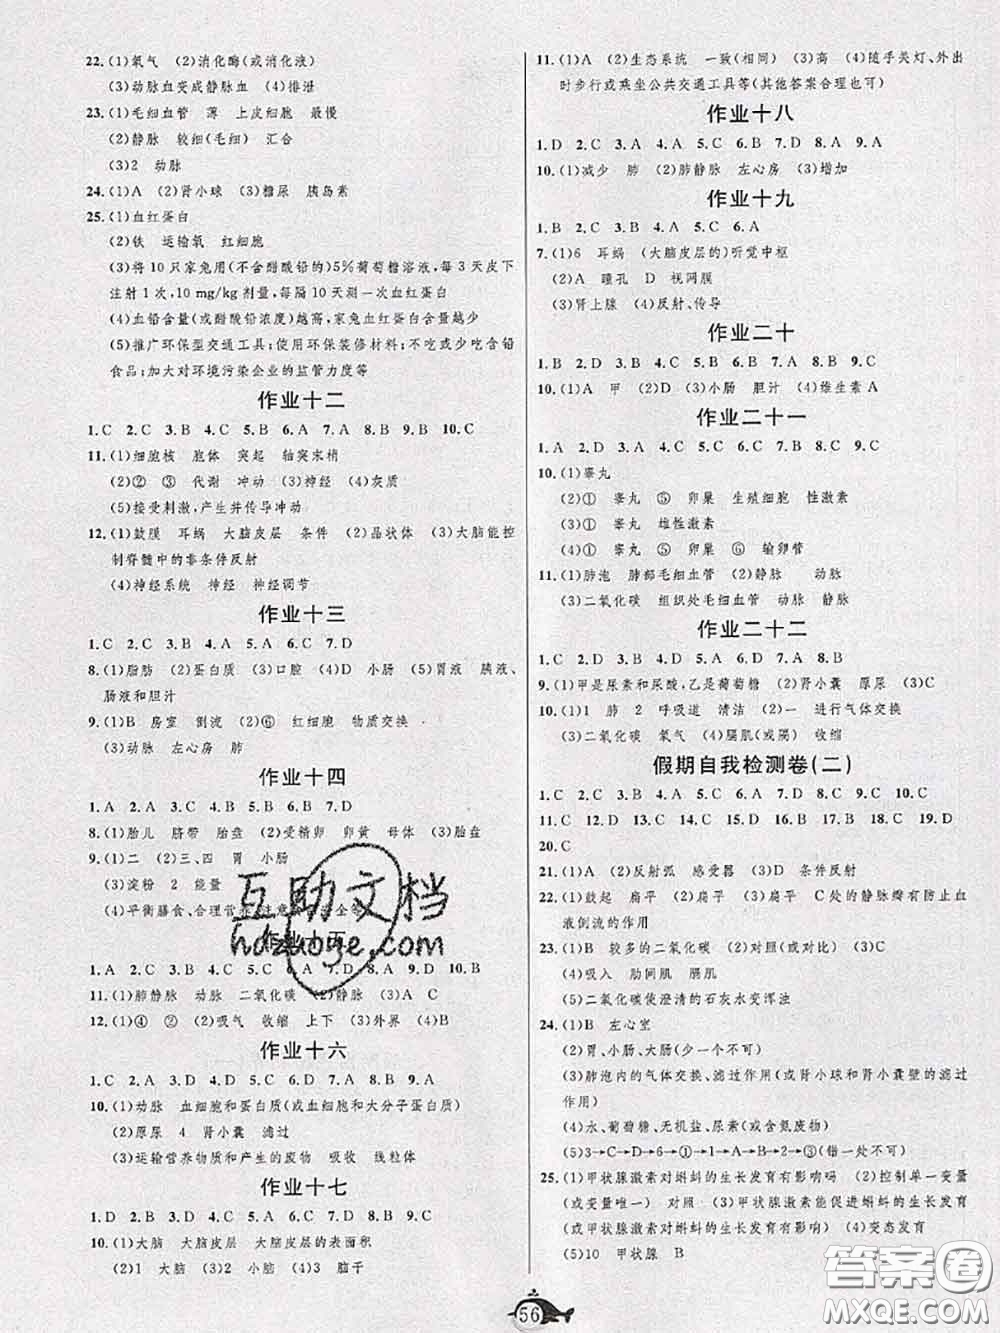 22.(1)氧气 (2)消化酶(或消化液)
(3)动脉血变成静脉血 (4)排泄
23.(1)毛细血管 薄 上皮细胞 最慢
(2)静脉 较细(毛细) 汇合
(3)2 动脉
24.(1)A (2)肾小球 (3)糖尿 胰岛素
25.(1)血红蛋白
(2)铁 运输氧 红细胞
(3)将10只家兔用(不含醋酸铅的)5%葡萄糖溶液,每3天皮下
注射1次,10 mg/kg剂量,每隔10天测一次血红蛋白
(4)血铅含量(或醋酸铅浓度)越高,家兔血红蛋白含量越少
(5)推广环保型交通工具;使用环保装修材料;不吃或少吃含铅
食品;加大对环境污染企业的监管力度等
作业十二
1.C 2.C 3.B 4.C 5.B 6.A 7.A 8.B 9.B 10.C
11.(1)细胞核 胞体 突起 轴突末梢
(2)② ③ 代谢 冲动 (3)神经 (4)灰质
(5)接受刺激,产生并传导冲动
12.(1)鼓膜 耳蜗 大脑皮层 条件 (2)晶状体 (3)大脑能控
制脊髓中的非条件反射
(4)神经系统 神经 神经调节
作业十三
1.C 2.C 3.B 4.A 5.A 6.C 7.D
8.(1)脂肪 (2)蛋白质 (3)口腔 (4)D 小肠 (5)胃液 胰液、
肠液和胆汁
9.(1)B 房室 倒流 (2)⑥ 红细胞 物质交换
(3)动脉 左心房 肺
作业十四
1.A 2.A 3.C 4.B 5.B 6.B 7.D
8.(1)胎儿 脐带 胎盘 (2)受精卵 卵黄 母体 (3)胎盘
9.(1)二 (2)三、四 胃 小肠
(3)淀粉 2 能量
(4)平衡膳食、合理营养,注意食品安全等
作业十五
1.A 2.B 3.B 4.C 5.C 6.A 7.D 8.A 9.D 10.B
11.(1)肺静脉 动脉 二氧化碳 (2)静脉 (3)A C
12.(1)④ ② (2)吸气 收缩 上下 (3)外界 (4)B
作业十六
1.C 2.A 3.B 4.D 5.A 6.C 7.D 8.C 9.C
10.(1)动脉 血细胞和蛋白质(或血细胞和大分子蛋白质)
(2)原尿 4 肾小囊 滤过
(3)运输营养物质和产生的废物 吸收 线粒体
作业十七
1.D 2.D 3.A 4.C 5.C 6.C 7.A 8.C 9.C
10.(1)大脑 大脑皮层 大脑皮层的表面积
(2)1 大脑 (3)2 小脑 (4)3 脑干
11.(1)A (2)生态系统 一致(相同) (3)高 (4)随手关灯、外出
时步行或乘坐公共交通工具等(其他答案合理也可)
作业十八
1.D 2.C 3.A 4.A 5.C 6.B 7.D 8.A 9.A
10.(1)减少 肺 (2)肺静脉 左心房 (3)增加
作业十九
1.B 2.B 3.C 4.A 5.C 6.A
7.(1)6 耳蜗 (大脑皮层的)听觉中枢
(2)A 瞳孔 D 视网膜
(3)肾上腺 (4)反射、传导
作业二十
1.B 2.D 3.B 4.C 5.C 6.D 7.B 8.A 9.C
10.(1)A 甲 (2)D (3)小肠 胆汁 (4)维生素A
作业二十一
1.A 2.D 3.A 4.C 5.C 6.C 7.B 8.D 9.C
10.(1)睾丸
(2)① 睾丸 ⑤ 卵巢 生殖细胞 性激素
(3)① 睾丸 雄性激素
(4)① 睾丸 ⑤ 卵巢 ⑥ 输卵管
11.(1)肺泡 肺部毛细血管 (2)静脉 动脉
(3)二氧化碳 组织处毛细血管 动脉 静脉
作业二十二
1.C 2.D 3.B 4.D 5.B 6.A 7.A 8.D
9.(1)甲是尿素和尿酸,乙是葡萄糖 (2)肾小囊 原尿 (3)C
10.(1)1 肺 2 呼吸道 清洁 (2)一 进行气体交换
(3)二氧化碳 氧气 (4)膈肌(或膈) 收缩
假期自我检测卷(二)
1.C 2.D 3.B 4.C 5.D 6.B 7.D 8.C 9.C 10.C
11.C 12.D 13.D 14.C 15.C 16.B 17.B 18.C 19.C
20.C
21.(1)A (2)反射弧 感受器 (3)D 条件反射
22.(1)鼓起 扁平 (2)扁平 (3)扁平 C处的静脉瓣有防止血
液倒流的作用
23.(1)B 较多的二氧化碳 (2)对照(或对比) (3)C
(4)吸入 肋间肌 膈肌
(5)二氧化碳使澄清的石灰水变浑浊
24.(1)B 左心室
(2)胃、小肠、大肠(少一个不可)
(3)肺泡内的气体交换、滤过作用(或肾小球和肾小囊壁的滤过
作用)
(4)水、葡萄糖、无机盐、尿素(或含氮废物)
(5)3→C→D→6→①→1→A→B→2→③(错一处不可)
25.(1)甲状腺激素对蝌蚪的生长发育有影响吗 (2)控制单一变量
(或变量唯一) 对照 (3)甲状腺激素能促进蝌蚪的生长发育
(或甲状腺激素对蝌蚪的生长发育有影响) (4)变态发育
(5)10 甲状腺 B
56
互助文档
hdzuoye.com
答案圈
MXQE.COM